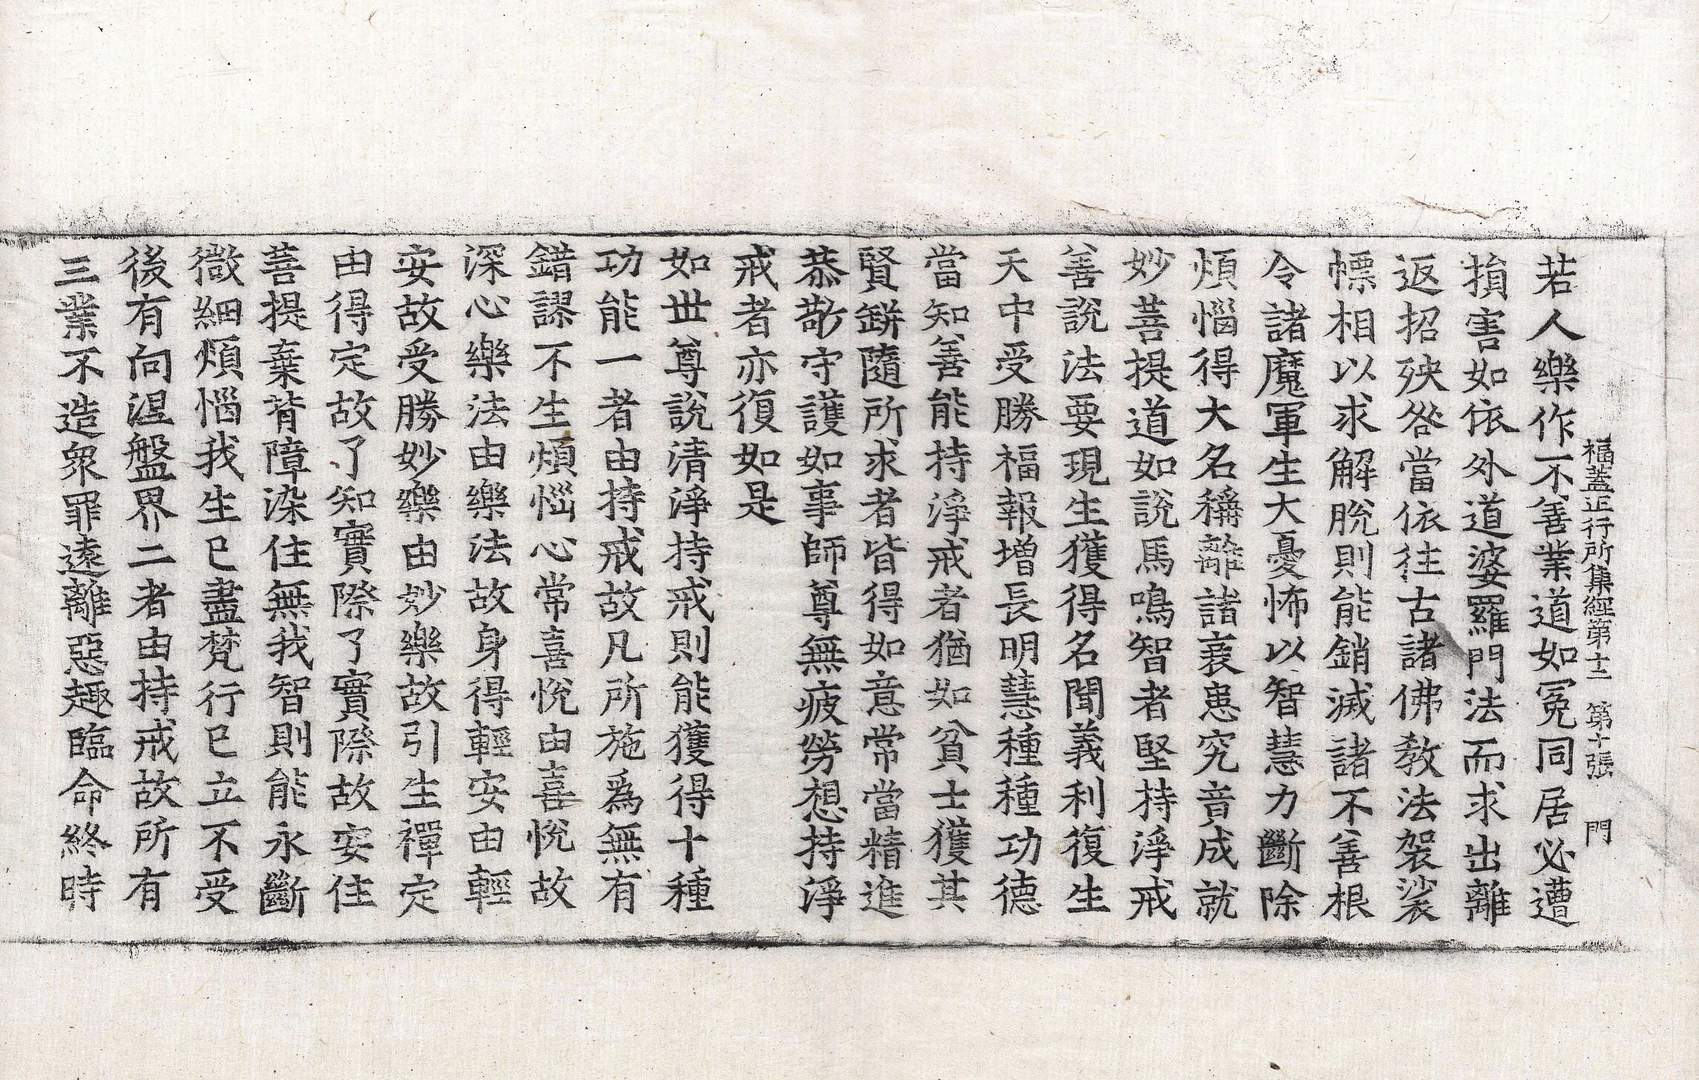 福蓋正行所集經第十二　第十張　門
若人樂作不善業道如冤同居必遭
損害如依外道婆羅門法而求出離
返招殃咎當依往古諸佛教法袈裟
幖相以求解脫則能銷滅諸不善根
令諸魔軍生大憂怖以智慧力斷除
煩惱得大名稱離諸衰患究竟成就
妙菩提道如說馬鳴智者堅持淨戒
善說法要現生獲得名聞義利復生
天中受勝福報增長明慧種種功德
當知善能持淨戒者猶如貧士獲其
賢缾隨所求者皆得如意常當精進
恭敬守護如事師尊無疲勞想持淨
戒者亦復如是
如世尊說清淨持戒則能獲得十種
功能一者由持戒故凡所施爲無有
錯謬不生煩惱心常喜悅由喜悅故
深心樂法由樂法故身得輕安由輕
安故受勝妙樂由妙樂故引生禪定
由得定故了知實際了實際故安住
菩提棄背障染住無我智則能永斷
微細煩惱我生已盡梵行已立不受
後有向涅盤界二者由持戒故所有
三業不造眾罪遠離惡趣臨命終時